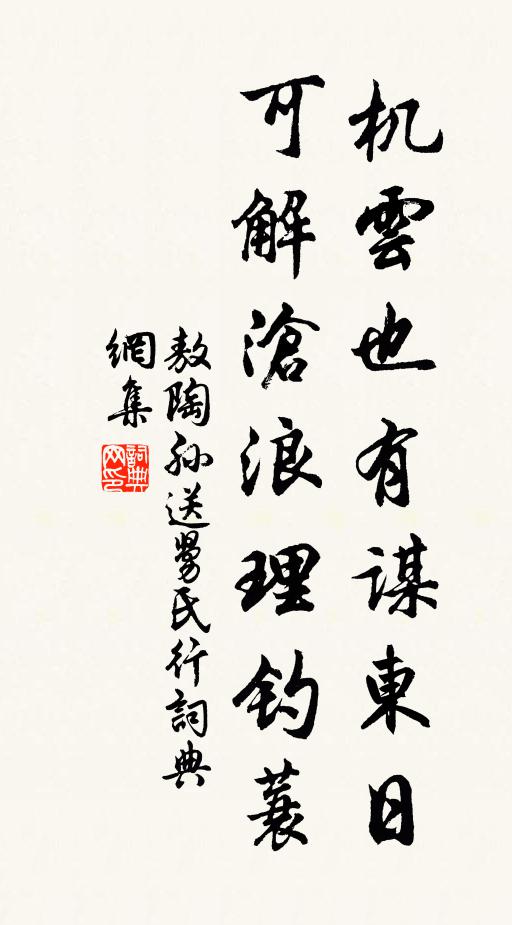 机雲也有謀東日
可解滄浪理釣蓑
敖陶孙送勞民行詞典
網集
詞典网印